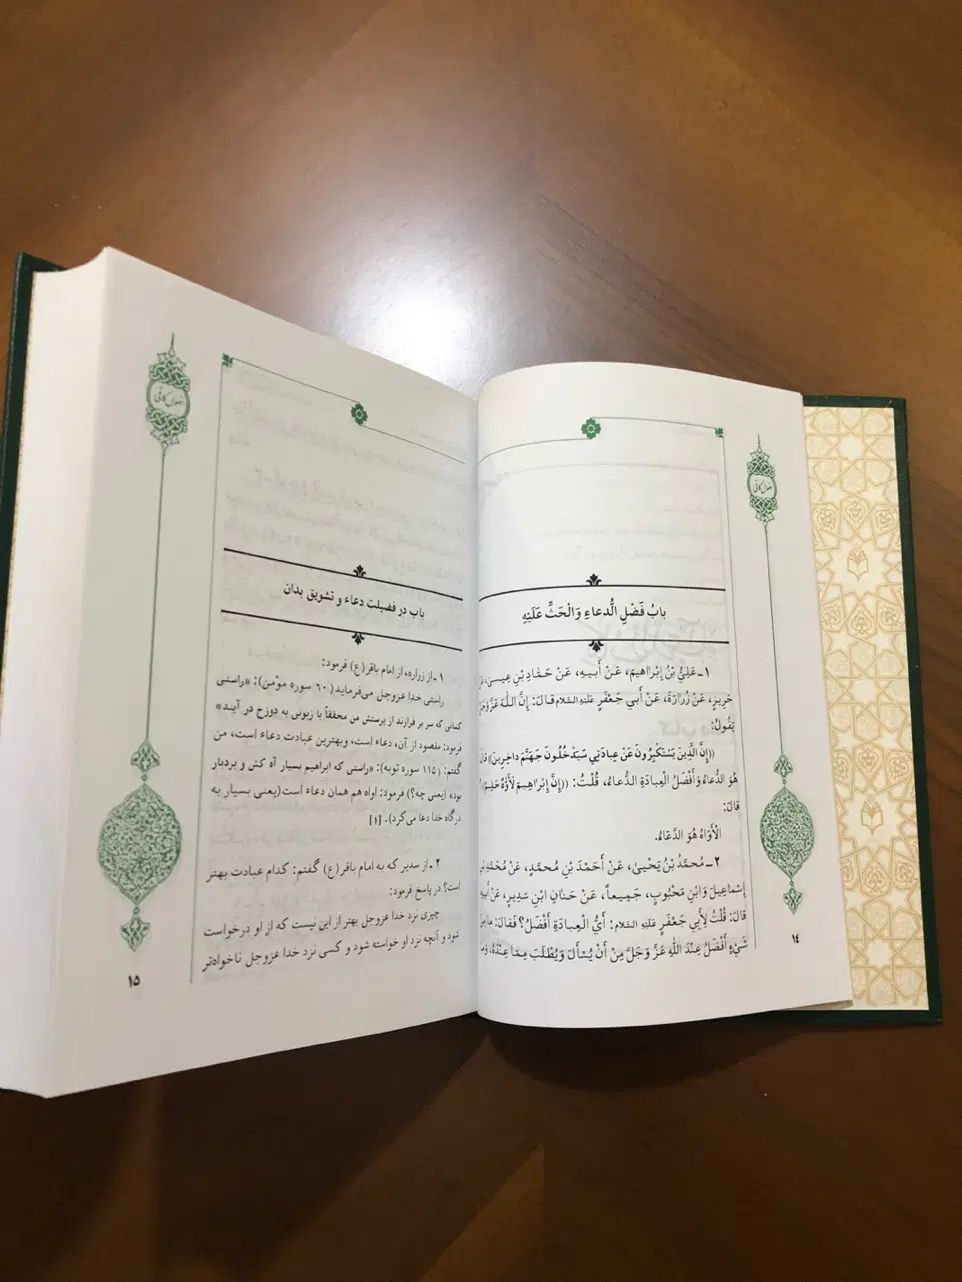 اصول کافی
بابُ فَضْلِ الدُّعاءِ وَالْحَثِّ عَلَیْهِ
۱ـ عَلِيُّ بْنُ إِبْراهیمَ، عَنْ أَبیهِ، عَنْ حَمّادِ بْنِ عیسیٰ، عَنْ
حَریزٍ، عَنْ زُرارَةَ، عَنْ أَبي جَعْفَرٍ عَلَیْهِ السَّلام قالَ: إِنَّ اللهَ عَزَّ وَجَلَّ
یَقُولُ:
((إِنَّ الَّذینَ یَسْتَکْبِرُونَ عَنْ عِبادَتي سَیَدْخُلُونَ جَهَنَّمَ داخِرینَ)) قالَ
هُوَ الدُّعاءُ وَأَفْضَلُ الْعِبادَةِ الدُّعاءُ، قُلْتُ: ((إِنَّ إِبْراهیمَ لَأَوّاهٌ حَلیمٌ
قالَ:
الْأَوّاهُ هُوَ الدَّعّاءُ.
۲ـ مُحَمَّدُ بْنُ یَحْییٰ، عَنْ أَحْمَدَ بْنِ مُحَمَّدٍ، عَنْ مُحَمَّدِ بْنِ
إِسْماعیلَ وَابْنِ مَحْبُوبٍ، جَمیعاً، عَنْ حَنانِ ابْنِ سَدیرٍ، عَنْ أَبیهِ
قالَ: قُلْتُ لِأَبي جَعْفَرٍ عَلَیْهِ السَّلام: أَيُّ الْعِبادَةِ أَفْضَلُ؟ فَقالَ: ما مِنْ
شَيْءٍ أَفْضَلَ عِنْدَ اللهِ عَزَّ وَجَلَّ مِنْ أَنْ یُسْأَلَ وَیُطْلَبَ مِمّا عِنْدَهُ،
۱۴
اصول کافی
باب در فضیلت دعاء و تشویق بدان
۱ـ از زراره، از امام باقر(ع) فرمود:
راستی خدا عزوجل می‌فرماید (۶۰ سوره مؤمن): «راستی
کسانی که سر بر فرازند از پرستش من محققاً با زبونی به دوزخ در آیند»
فرمود: مقصود از آن، دعاء است، وبهترین عبادت دعاء است، من
گفتم: (۱۱۵ سوره توبه): «راستی که ابراهیم بسیار آه کش و بردبار
بود» (یعنی چه؟) فرمود: اواه هم همان دعاء است (یعنی بسیار به
درگاه خدا دعا می‌کرد). [۱]
۲ـ از سدیر که به امام باقر(ع) گفتم: کدام عبادت بهتر
است؟ در پاسخ فرمود:
چیزی نزد خدا عزوجل بهتر از این نیست که از او درخواست
شود و آنچه نزد او خواسته شود و کسی نزد خدا عزوجل ناخواه‌تر
۱۵